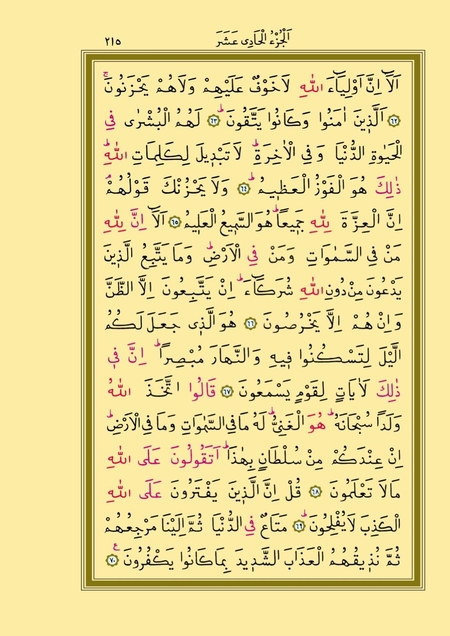 ٢١٥ اَلْجُزْءُ الْحَادِى عَشَرَ
اَلَٓا اِنَّ اَوْلِيَٓاءَ اللّٰهِ لَا خَوْفٌ عَلَيْهِمْ وَلَا هُمْ يَحْزَنُونَۚ
﴿٦٢﴾ اَلَّذ۪ينَ اٰمَنُوا وَكَانُوا يَتَّقُونَۜ ﴿٦٣﴾ لَهُمُ الْبُشْرٰى فِي
الْحَيٰوةِ الدُّنْيَا وَفِي الْاٰخِرَةِۜ لَا تَبْد۪يلَ لِكَلِمَاتِ اللّٰهِۜ
ذٰلِكَ هُوَ الْفَوْزُ الْعَظ۪يمُۜ ﴿٦٤﴾ وَلَا يَحْزُنْكَ قَوْلُهُمْۢ
اِنَّ الْعِزَّةَ لِلّٰهِ جَم۪يعًاۜ هُوَ السَّم۪يعُ الْعَل۪يمُ ﴿٦٥﴾ اَلَٓا اِنَّ لِلّٰهِ
مَنْ فِي السَّمٰوَاتِ وَمَنْ فِي الْاَرْضِۜ وَمَا يَتَّبِعُ الَّذ۪ينَ
يَدْعُونَ مِنْ دُونِ اللّٰهِ شُرَكَٓاءَۜ اِنْ يَتَّبِعُونَ اِلَّا الظَّنَّ
وَاِنْ هُمْ اِلَّا يَخْرُصُونَ ﴿٦٦﴾ هُوَ الَّذ۪ي جَعَلَ لَكُمُ
الَّيْلَ لِتَسْكُنُوا ف۪يهِ وَالنَّهَارَ مُبْصِرًاۜ اِنَّ ف۪ي
ذٰلِكَ لَاٰيَاتٍ لِقَوْمٍ يَسْمَعُونَ ﴿٦٧﴾ قَالُوا اتَّخَذَ اللّٰهُ
وَلَدًا سُبْحَانَهُۜ هُوَ الْغَنِيُّۜ لَهُ مَا فِي السَّمٰوَاتِ وَمَا فِي الْاَرْضِۜ
اِنْ عِنْدَكُمْ مِنْ سُلْطَانٍ بِهٰذَاۜ اَتَقُولُونَ عَلَى اللّٰهِ
مَا لَا تَعْلَمُونَ ﴿٦٨﴾ قُلْ اِنَّ الَّذ۪ينَ يَفْتَرُونَ عَلَى اللّٰهِ
الْكَذِبَ لَا يُفْلِحُونَۜ ﴿٦٩﴾ مَتَاعٌ فِي الدُّنْيَا ثُمَّ اِلَيْنَا مَرْجِعُهُمْ
ثُمَّ نُذ۪يقُهُمُ الْعَذَابَ الشَّد۪يدَ بِمَا كَانُوا يَكْفُرُونَ۟ ﴿٧٠﴾